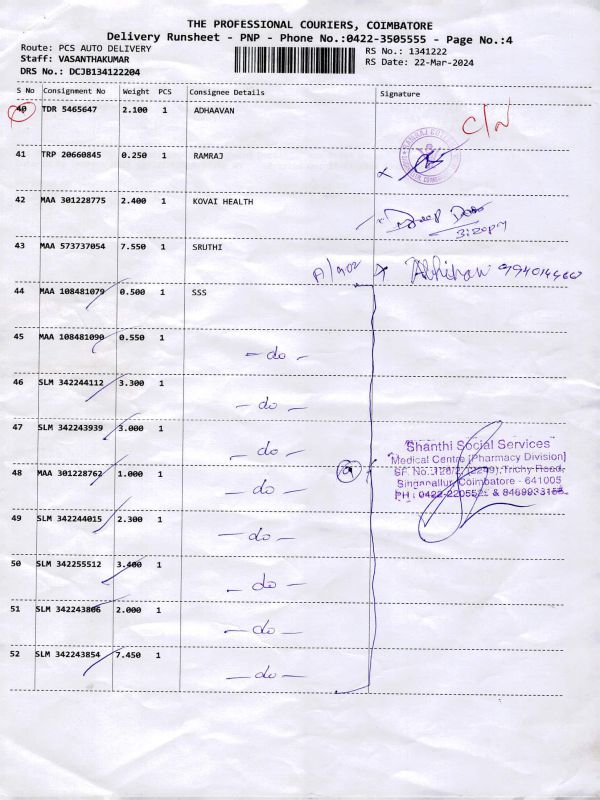 THE PROFESSIONAL COURIERS, COIMBATORE
Delivery Runsheet - PNP - Phone No.:0422-3505555 - Page No.:4
Route: PCS AUTO DELIVERY
RS No.: 1341222
Staff: VASANTHAKUMAR
RS Date: 22-Mar-2024
DRS No.: DCJB134122204
S No Consignment No Weight PCS Consignee Details Signature
40 TDR 5465647 2.100 1 ADHAAVAN C/N
41 TRP 20660845 0.250 1 RAMRAJ
42 MAA 301228775 2.400 1 KOVAI HEALTH
43 MAA 573737054 7.550 1 SRUTHI
44 MAA 108481079 0.500 1 SSS
45 MAA 108481090 0.550 1
- do -
46 SLM 342244112 3.300 1
- do -
47 SLM 342243939 3.000 1
- do -
48 MAA 301228762 1.000 1
- do -
49 SLM 342244015 2.300 1
- do -
50 SLM 342255512 3.400 1
- do -
51 SLM 342243806 2.000 1
- do -
52 SLM 342243854 7.450 1
- do -
Shanthi Social Services
Medical Centre [Pharmacy Division]
SF. No.: Trichy Road,
Singanallur, Coimbatore - 641005
PH : &